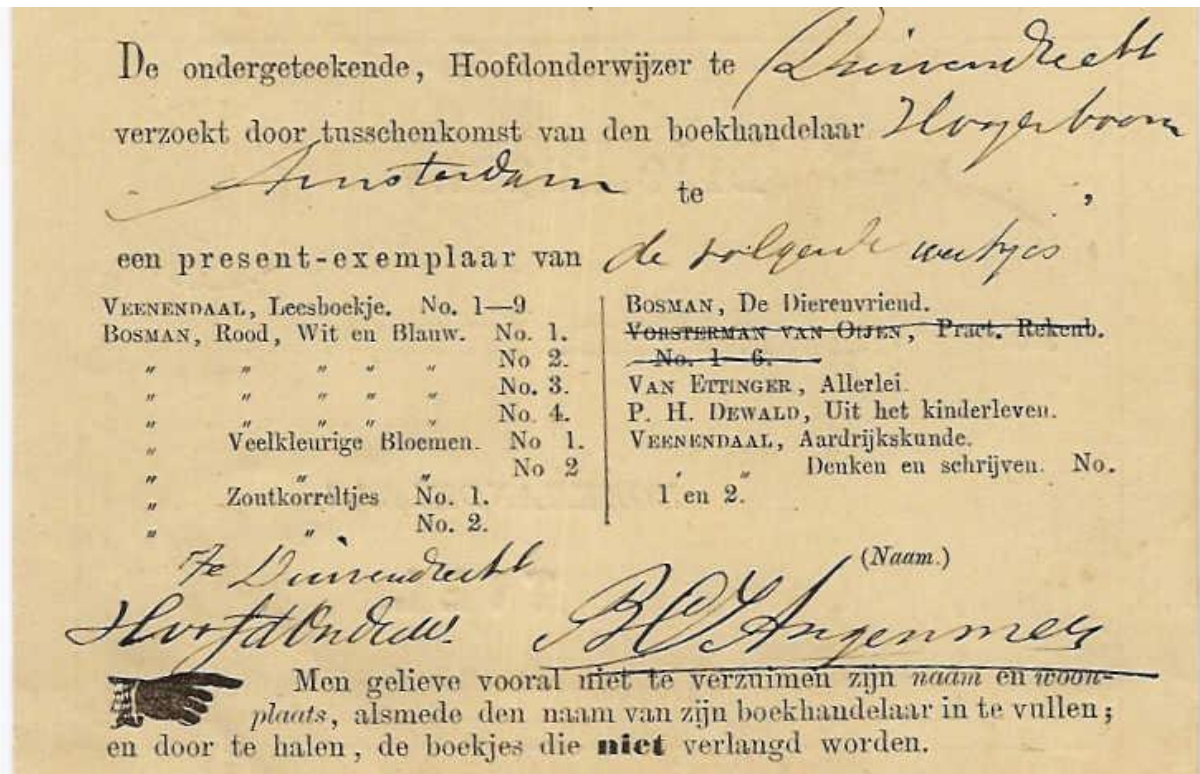 De ondergeteekende, Hoofdonderwijzer te Duivendrecht
verzoekt door tusschenkomst van den boekhandelaar Hoogerboom
Amsterdam te ,
een present-exemplaar van de volgende werkjes
VEENENDAAL, Leesboekje. No. 1—9
BOSMAN, Rood, Wit en Blauw. No. 1.
" " " " " No 2.
" " " " " No. 3.
" " " " " No. 4.
" Veelkleurige Bloemen. No 1.
" " " No 2
" Zoutkorreltjes No. 1.
" " No. 2.
BOSMAN, De Dierenvriend.
VORSTERMAN VAN OIJEN, Pract. Rekenb.
No. 1—6.
VAN ETTINGER, Allerlei.
P. H. DEWALD, Uit het kinderleven.
VEENENDAAL, Aardrijkskunde.
" " Denken en schrijven. No.
1 en 2.
(Naam.)
Te Duivendrecht
Hoofdonderw.
Men gelieve vooral niet te verzuimen zijn naam en woon-
plaats, alsmede den naam van zijn boekhandelaar in te vullen;
en door te halen, de boekjes die niet verlangd worden.